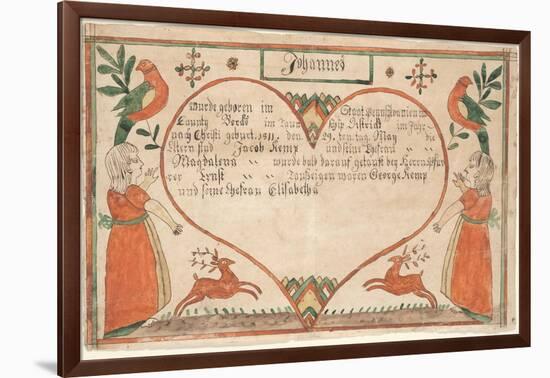 Johannes
wurde geboren im Staat Pennsylvanien im
County Bercks im Taun ship District im Jahr
nach Christi geburt 1811 den 29. ten tag May die
Eltern sind Jacob Kemp und seine Ehefrau
Magdalena wurde bald darauf getauft der Herr
rer Ernst Taufzeigen waren George Kemp
und seine Ehefrau Elisabetha